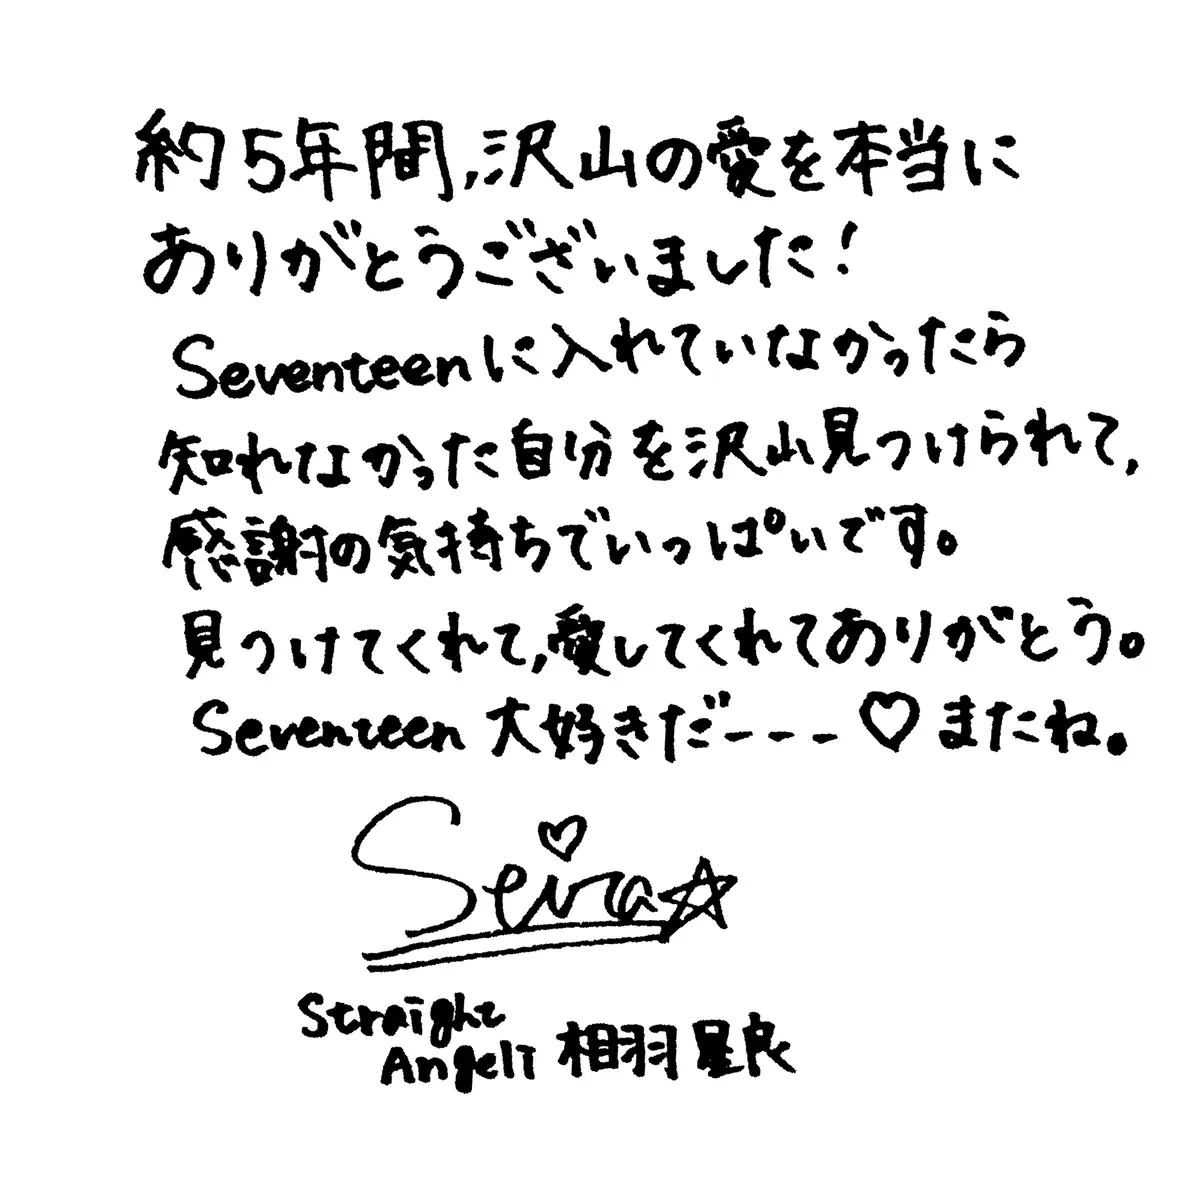 約5年間,沢山の愛を本当に
ありがとうございました!
Seventeenに入れていなかったら
知れなかった自分を沢山見つけられて,
感謝の気持ちでいっぱいです。
見つけてくれて,愛してくれてありがとう。
Seventeen 大好きだーーー♡またね。
Seira☆
Straight
Angeli 相羽星良